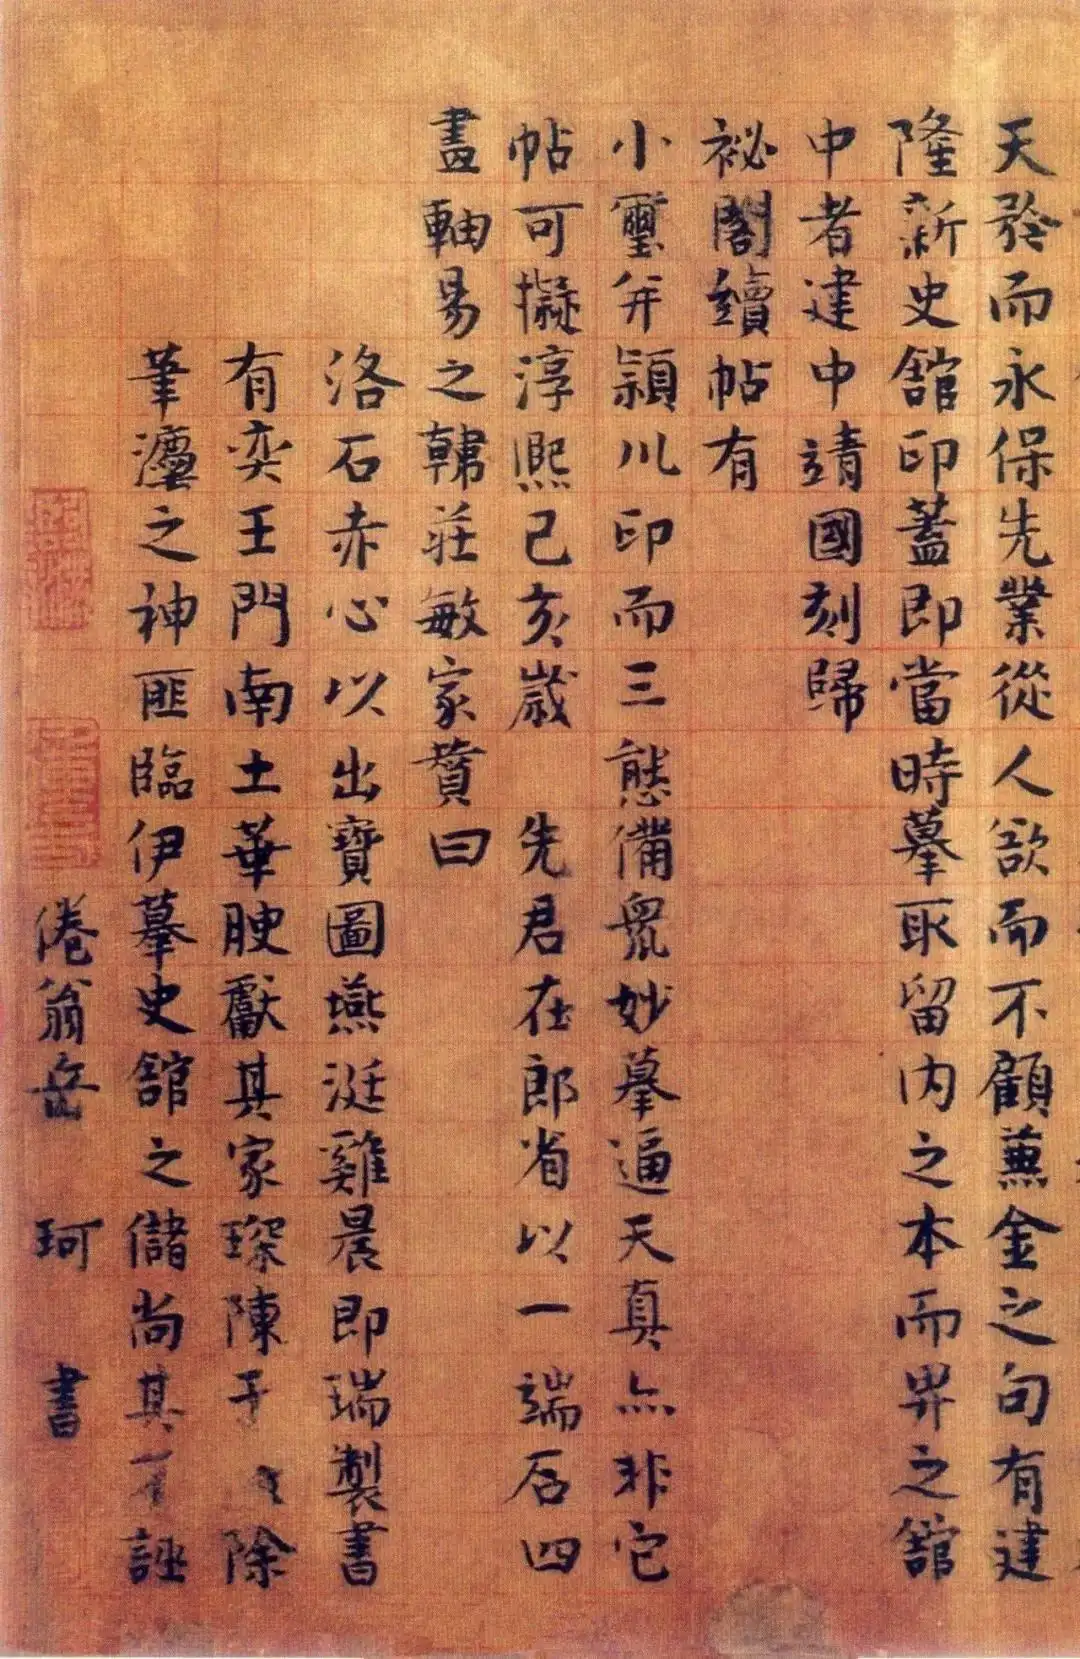 天發而永保先業從人欲而不顧兼金之句有建
隆新史館印蓋即當時摹取留内之本而畀之館
中者建中靖國刻歸
祕閣續帖有
小璽并潁川印而三態備衆妙摹逼天真亦非它
帖可擬淳熙己亥歲 先君在郎省以一端石四
畫軸易之韓莊敏家贊曰
洛石赤心以出寶圖燕涎雞晨即瑞製書
有奕王門南土華腴獻其家琛陳于 除
筆灋之神匪臨伊摹史館之儲尚其 誣
倦翁岳 珂 書